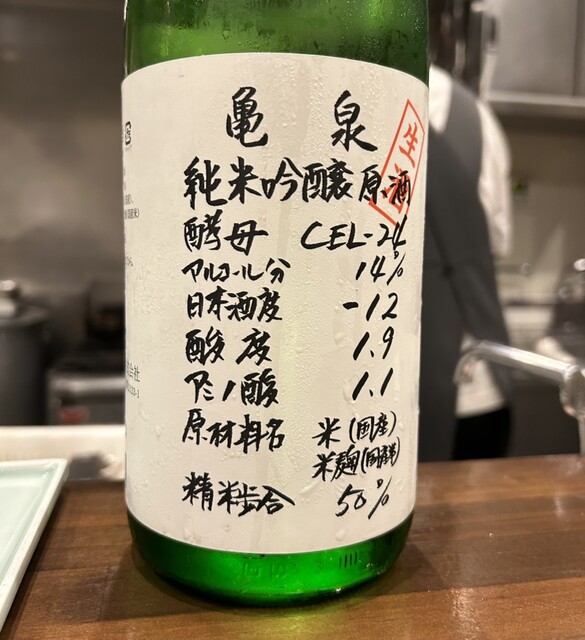 亀泉
生酒
純米吟醸原酒
酵母 CEL-24
アルコール分 14%
日本酒度 -12
酸度 1.9
アミノ酸 1.1
原材料名 米(国産)
米麹(国産米)
精米歩合 50%